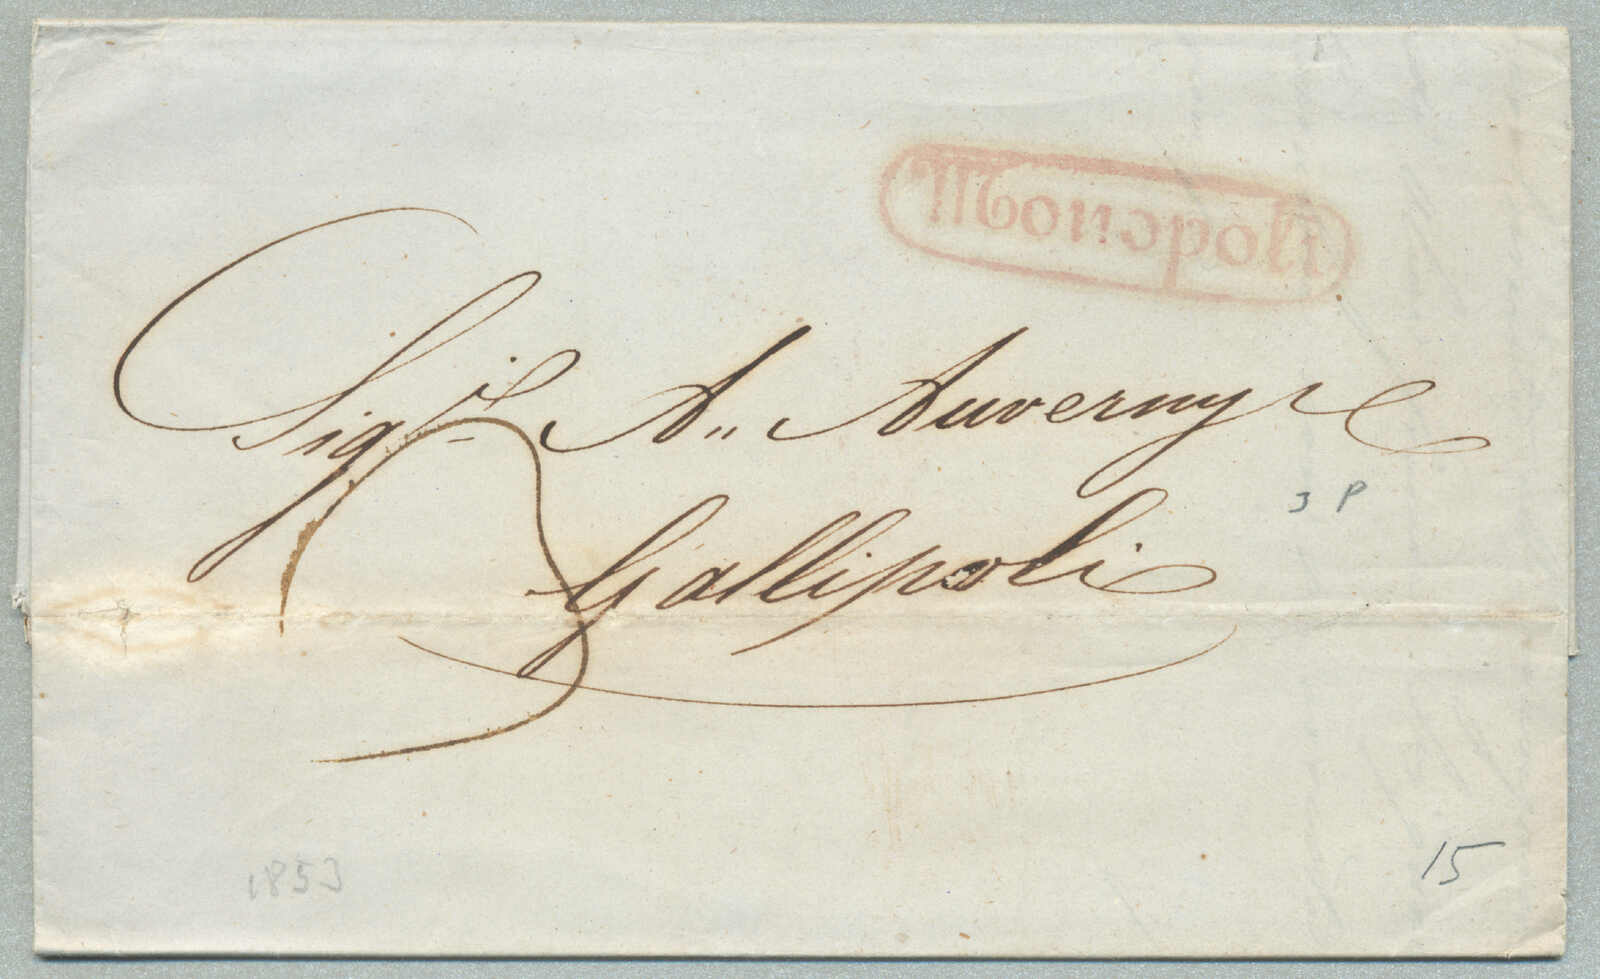 Monopoli
Sig.r A. Auverny
3 P
Gallipoli
3
1853
15